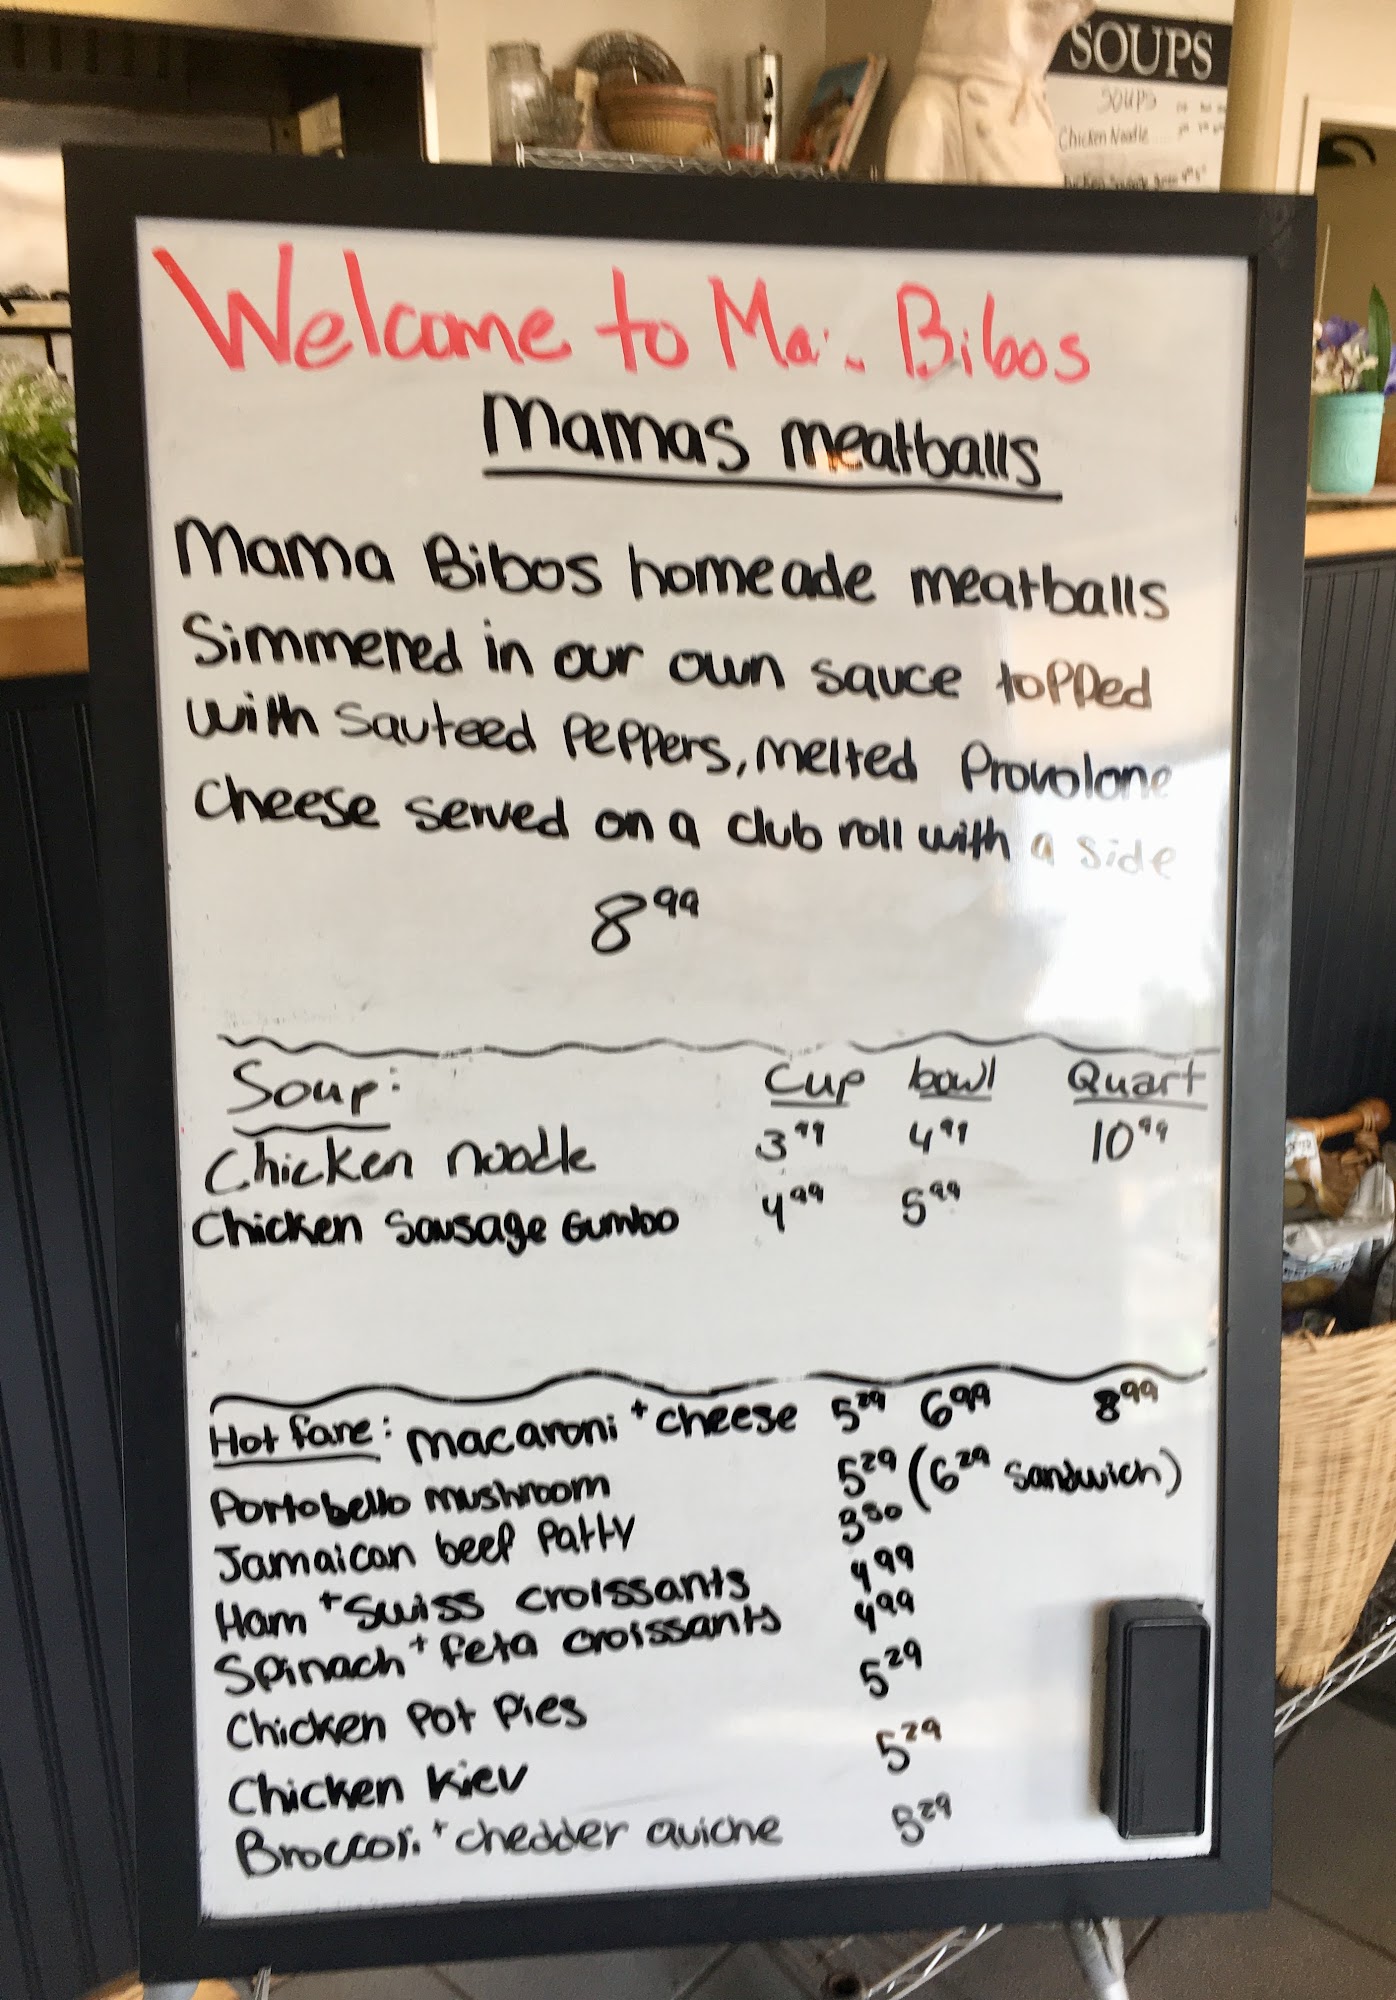 SOUPS
SOUPS
Chicken Noodle
Welcome to Bibos
Mamas meatballs
Mama Bibos homeade meatballs
Simmered in our own sauce topped
with sauteed peppers, melted Provolone
cheese served on a club roll with a side
8⁹⁹
Soup: Cup bowl Quart
Chicken noodle 3⁹⁹ 4⁹⁹ 10⁹⁹
Chicken Sausage Gumbo 4⁹⁹ 5⁹⁹
Hot fare: macaroni + cheese 5²⁹ 6⁹⁹ 8⁹⁹
Portobello mushroom 5²⁹ (6²⁹ sandwich)
Jamaican beef Patty 3⁵⁰
Ham + Swiss croissants 4⁹⁹
Spinach + feta croissants 4⁹⁹
Chicken Pot Pies 5²⁹
Chicken Kiev 5²⁹
Broccoli + chedder quiche 5²⁹